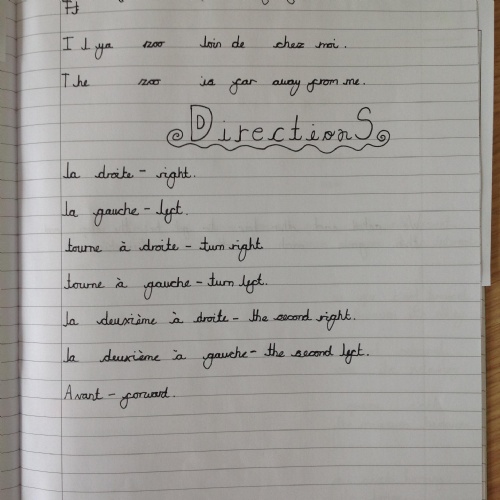 Il ya zoo loin de chez moi.
The zoo is far away from me.
DirectionS
la droite - right.
la gauche - left.
tourne à droite - turn right
tourne à gauche - turn left.
la deuxième à droite - the second right.
la deuxième à gauche - the second left.
Avant - forward.